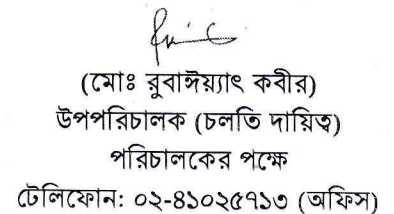 (মোঃ রুবাঈয়্যাৎ কবীর)
উপপরিচালক (চলতি দায়িত্ব)
পরিচালকের পক্ষে
টেলিফোন: ০২-৪১০২৫৭১৩ (অফিস)